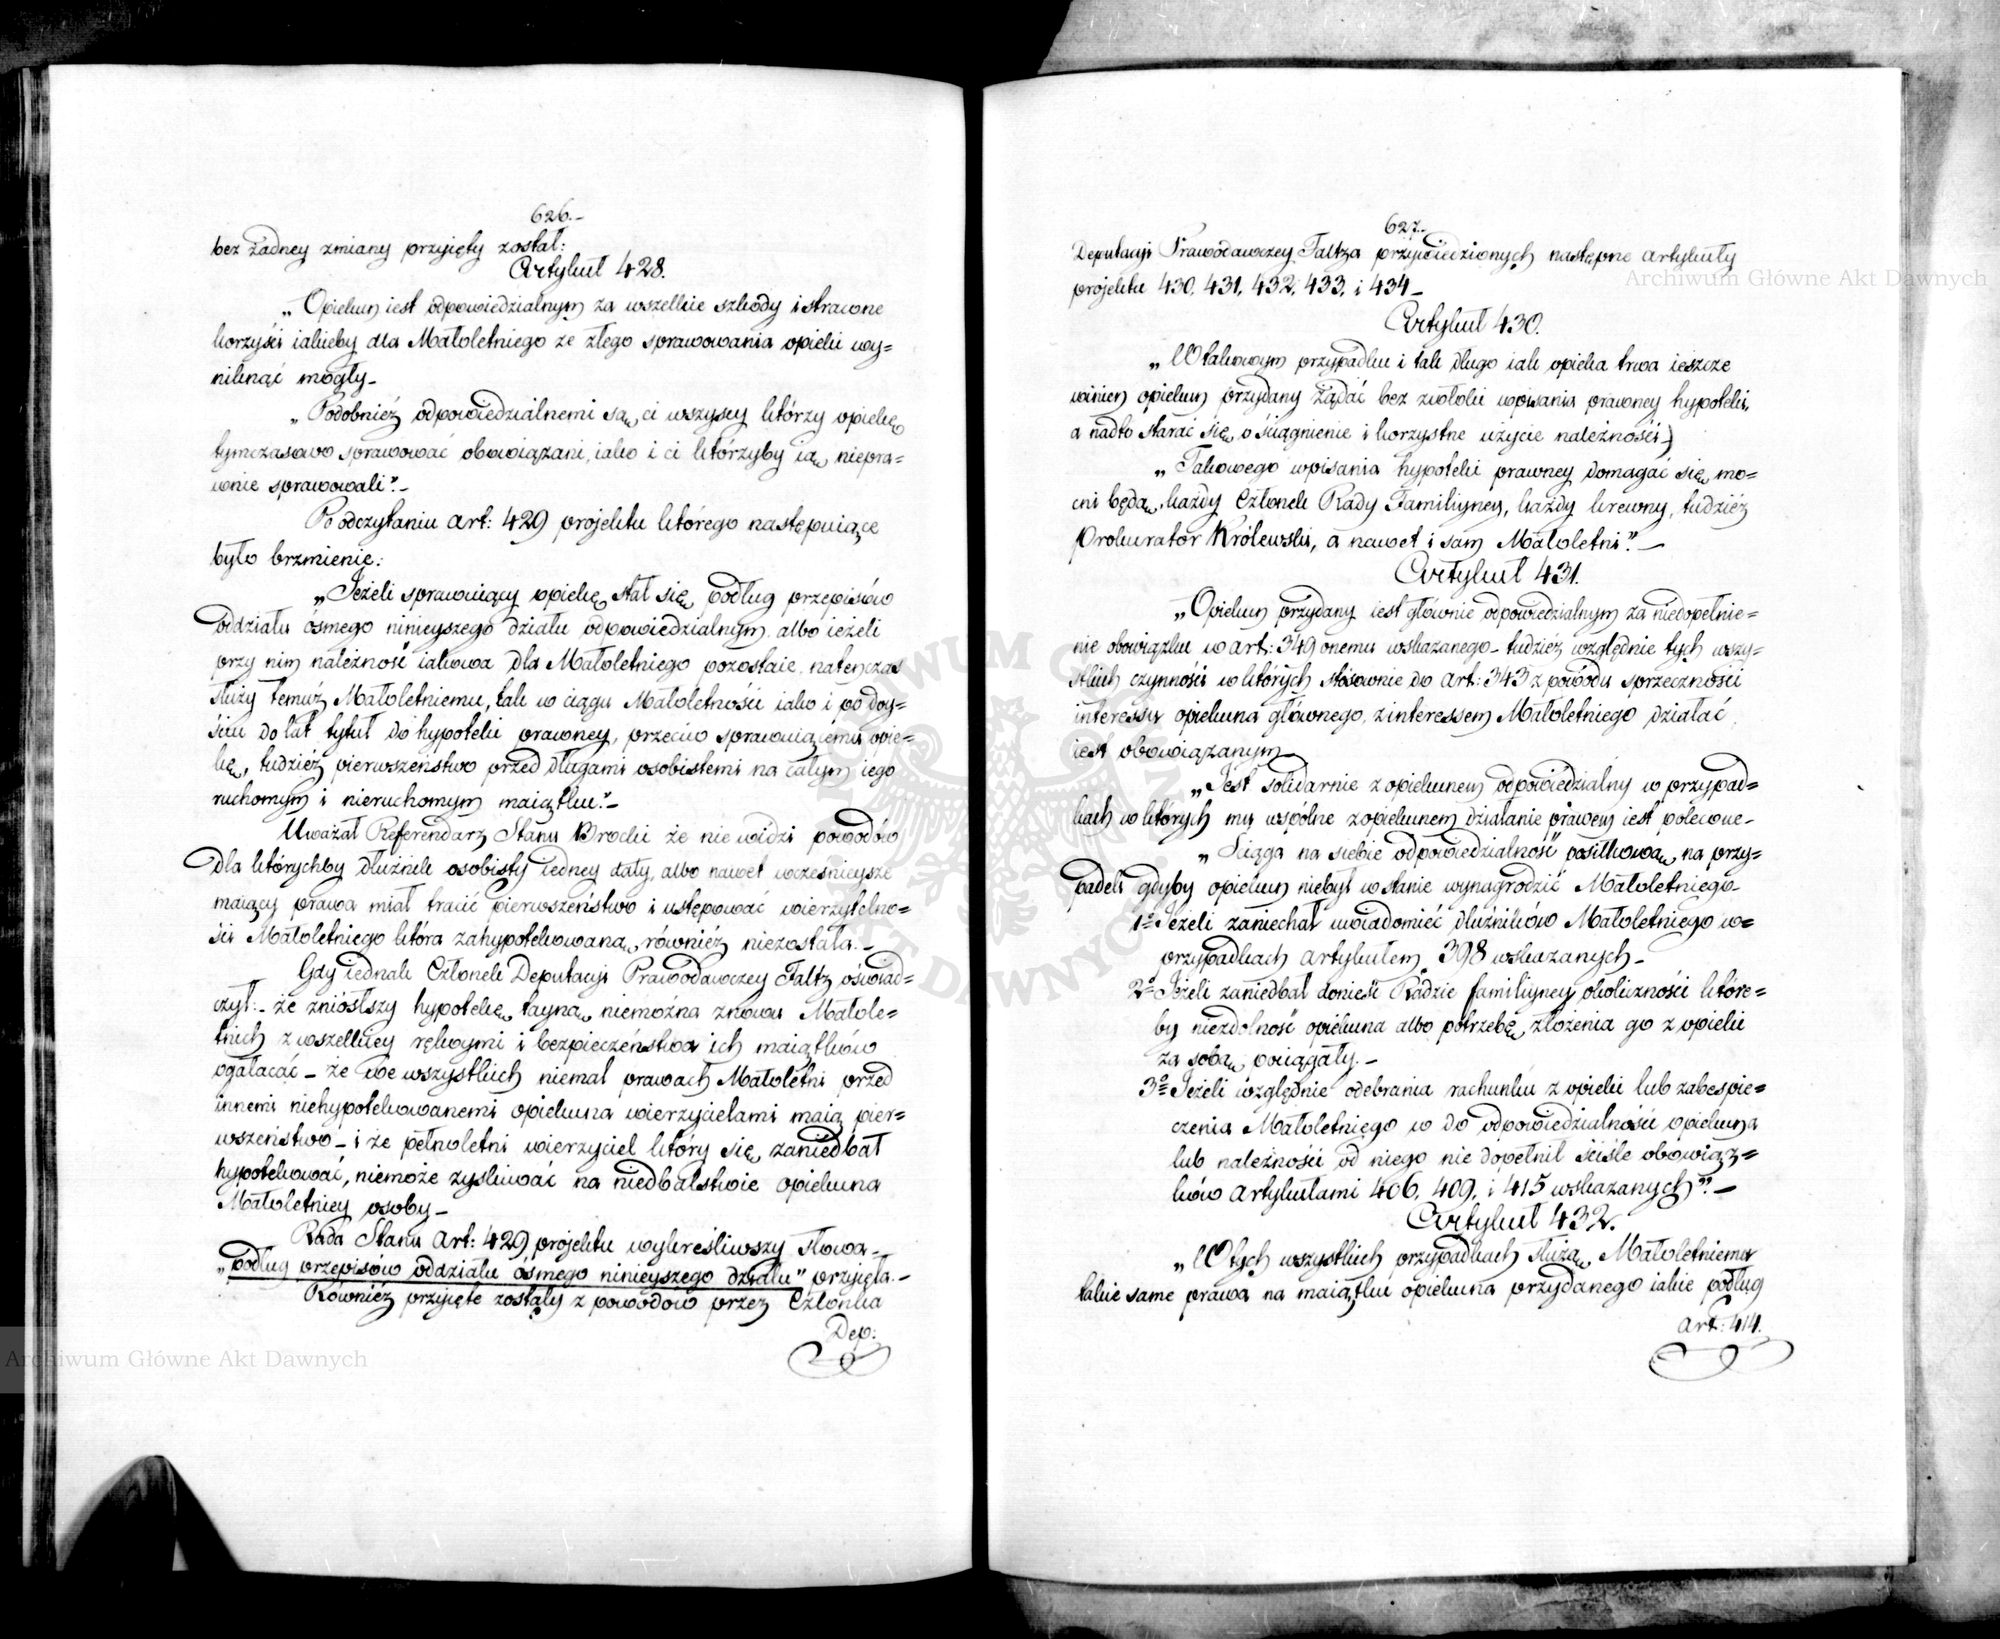 626.-
bez żadney zmiany przyięty został:
Artykuł 428.
„Opiekun iest odpowiedzialnym za wszelkie szkody i stracone
korzyści iakieby dla Małoletniego ze złego sprawowania opieki wy=
niknąć mogły_
„Podobnież odpowiedzialnemi są ci wszyscy którzy opiekę
tymczasowo sprawować obowiązani, iako i ci którzyby ią niepra=
wnie sprawowali”._
Po odczytaniu Art: 429 projektu którego następuiące
było brzmienie:
„Jeżeli sprawuiący opiekę stał się podług przepisów
oddziału ósmego ninieyszego działu odpowiedzialnym albo ieżeli
przy nim należność iakowa dla Małoletniego pozostaie, natenczas
służy temuż Małoletniemu, tak w ciągu Małoletności iako i po doy=
ściu do lat tytuł do hypoteki prawney, przeciw sprawuiącemu opie=
kę, tudzież pierwszeństwo przed długami osobistemi na całym iego
ruchomym i nieruchomym maiątku.”_
Uważał Referendarz Stanu Brocki że nie widzi powodów
dla którychby dłużnik osobisty iedney daty, albo nawet wcześnieysze
maiący prawa miał tracić pierwszeństwo i ustępować wierzytelno=
ści Małoletniego która zahypotekowaną również niezostała._
Gdy iednak Członek Deputacyi Prawodawczey Faltz oświad=
czył:_ że zniósłszy hypotekę tayną niemożna znowu Małole=
tnich z wszelkiey rękoymi i bezpieczeństwa ich maiątków
ogałacać_ że we wszystkich niemal prawach Małoletni przed
innemi niehypotekowanemi opiekuna wierzycielami maią pier=
wszeństwo_ i że pełnoletni wierzyciel który się zaniedbał
hypotekować, niemoże zyskiwać na niedbalstwie opiekuna
Małoletniey osoby_
Rada Stanu Art: 429 projektu wykreśliwszy słowa_
„podług przepisów oddziału ósmego ninieyszego działu” przyięła._
Również przyięte zostały z powodów przez Członka
Dep:
627.
Deputacyi Prawodawczey Faltza przywiedzionych następne artykuły
projektu 430, 431, 432, 433, i 434_
Artykuł 430.
„W takowym przypadku i tak długo iak opieka trwa ieszcze
winien opiekun przydany żądać bez zwłoki wpisania prawney hypoteki,
a nadto starać się o ściągnienie i korzystne użycie należności
„Takowego wpisania hypoteki prawney domagać się mo=
cni będą, każdy Członek Rady Familiyney, każdy krewny, tudzież
Prokurator Królewski, a nawet i sam Małoletni.”_
Artykuł 431.
„Opiekun przydany iest głównie odpowiedzialnym za niedopełnie=
nie obowiązku w art: 349 onemu wskazanego_ tudzież względnie tych wszy=
stkich czynności w których stósownie do Art: 343 z powodu sprzeczności
interessu opiekuna głównego, z interessem Małoletniego działać
iest obowiązanym_
„Jest solidarnie z opiekunem odpowiedzialny w przypad=
kach w których mu wspólne z opiekunem działanie prawem iest polecone_
„Ściąga na siebie odpowiedzialność posiłkową na przy=
padek gdyby opiekun niebył w stanie wynagrodzić Małoletniego_
1o Jeżeli zaniechał uwiadomić dłużników Małoletniego w=
przypadkach artykułem 398 wskazanych_
2o Jeżeli zaniedbał donieść Radzie familiyney okoliczności które=
by niezdolność opiekuna albo potrzebę złożenia go z opieki
za sobą pociągały._
3o Jeżeli względnie odebrania rachunku z opieki lub zabespie=
czenia Małoletniego w do odpowiedzialności opiekuna
lub należności od niego nie dopełnił ściśle obowiąz=
ków Artykułami 406, 409, i 415 wskazanych”._
Artykuł 432.
„W tych wszystkich przypadkach służą Małoletniemu
takie same prawa na maiątku opiekuna przydanego iakie podług
Art: 414.
Archiwum Główne Akt Dawnych
Archiwum Główne Akt Dawnych
ARCHIWUM GŁÓWNE AKT DAWNYCH